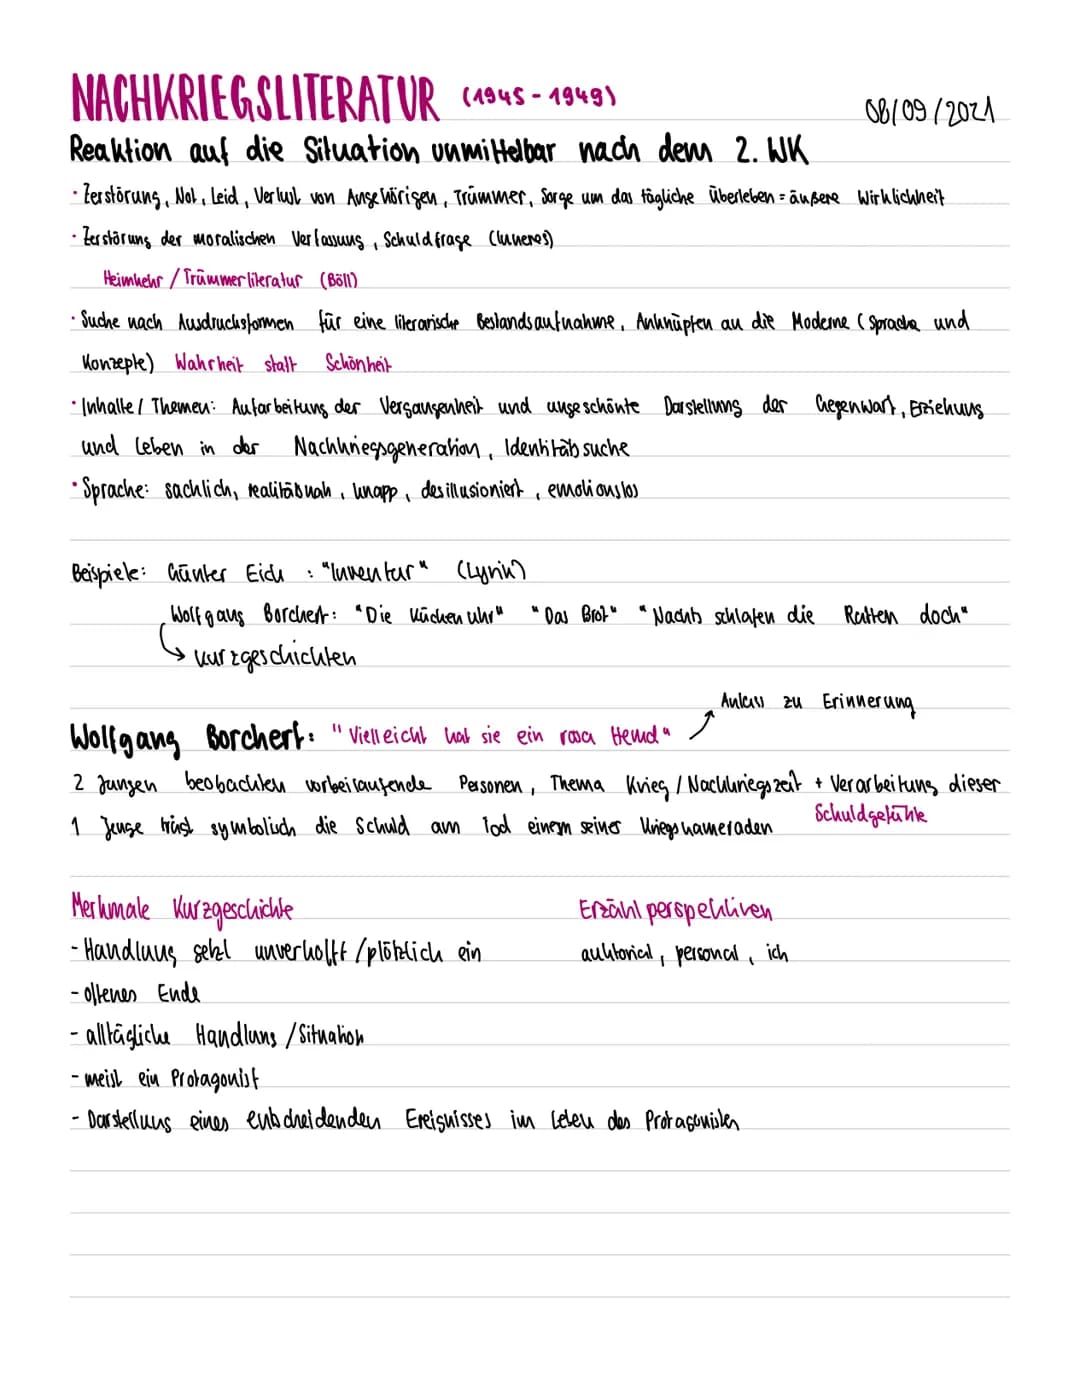 NACHKRIEGSLITERATUR (1945-1949)
08/09/2021
Reaktion auf die Situation unmittelbar nach dem 2. WK
· Zerstörung, Not, Leid, Verlust von Angehörigen, Trümmer, Sorge um das tägliche Überleben = äußere Wirklichkeit
· Zerstörung der moralischen Verfassung, Schuldfrage (Inneres)
Heimkehr / Trümmerliteratur (Böll)
· Suche nach Ausdrucksformen für eine literarische Bestandsaufnahme, Anknüpfen an die Moderne (Sprache und
Konzepte) Wahrheit statt Schönheit
· Inhalte / Themen: Aufarbeitung der Vergangenheit und ungeschönte Darstellung der Gegenwart, Erziehung
und Leben in der Nachkriegsgeneration, Identitätssuche
· Sprache: sachlich, realitätsnah, knapp, desillusioniert, emotionslos
Beispiele: Günter Eich : "Inventur" (Lyrik)
Wolfgang Borchert: "Die Küchenuhr" "Das Brot" "Nachts schlafen die Ratten doch"
↳ Kurzgeschichten
Anlass zu Erinnerung
Wolfgang Borchert: "Vielleicht hat sie ein rosa Hemd"
2 Jungen beobachten vorbeilaufende Personen, Thema Krieg / Nachkriegszeit + Verarbeitung dieser
Schuldgefühle
1 Junge trägt symbolisch die Schuld am Tod einem seiner Kriegskameraden
Merkmale Kurzgeschichte
- Handlung setzt unverhofft / plötzlich ein
- offenes Ende
- alltägliche Handlung / Situation
- meist ein Protagonist
- Darstellung eines entscheidenden Ereignisses im Leben des Protagonisten
Erzählperspektiven
auktorial, personal, ich